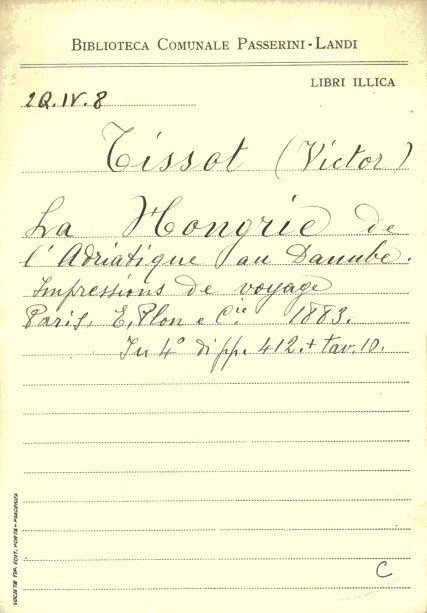 BIBLIOTECA COMUNALE PASSERINI-LANDI
LIBRI ILLICA
2Q.IV.8
Tissot (Victor)
La Hongrie de
l'Adriatique au Danube.
Impressions de voyage
Paris, E. Plon e C.ie 1883.
In 4° di pp. 412. + tav. 10.
C
SOCIETÀ TIP. EDIT. PORTA - PIACENZA